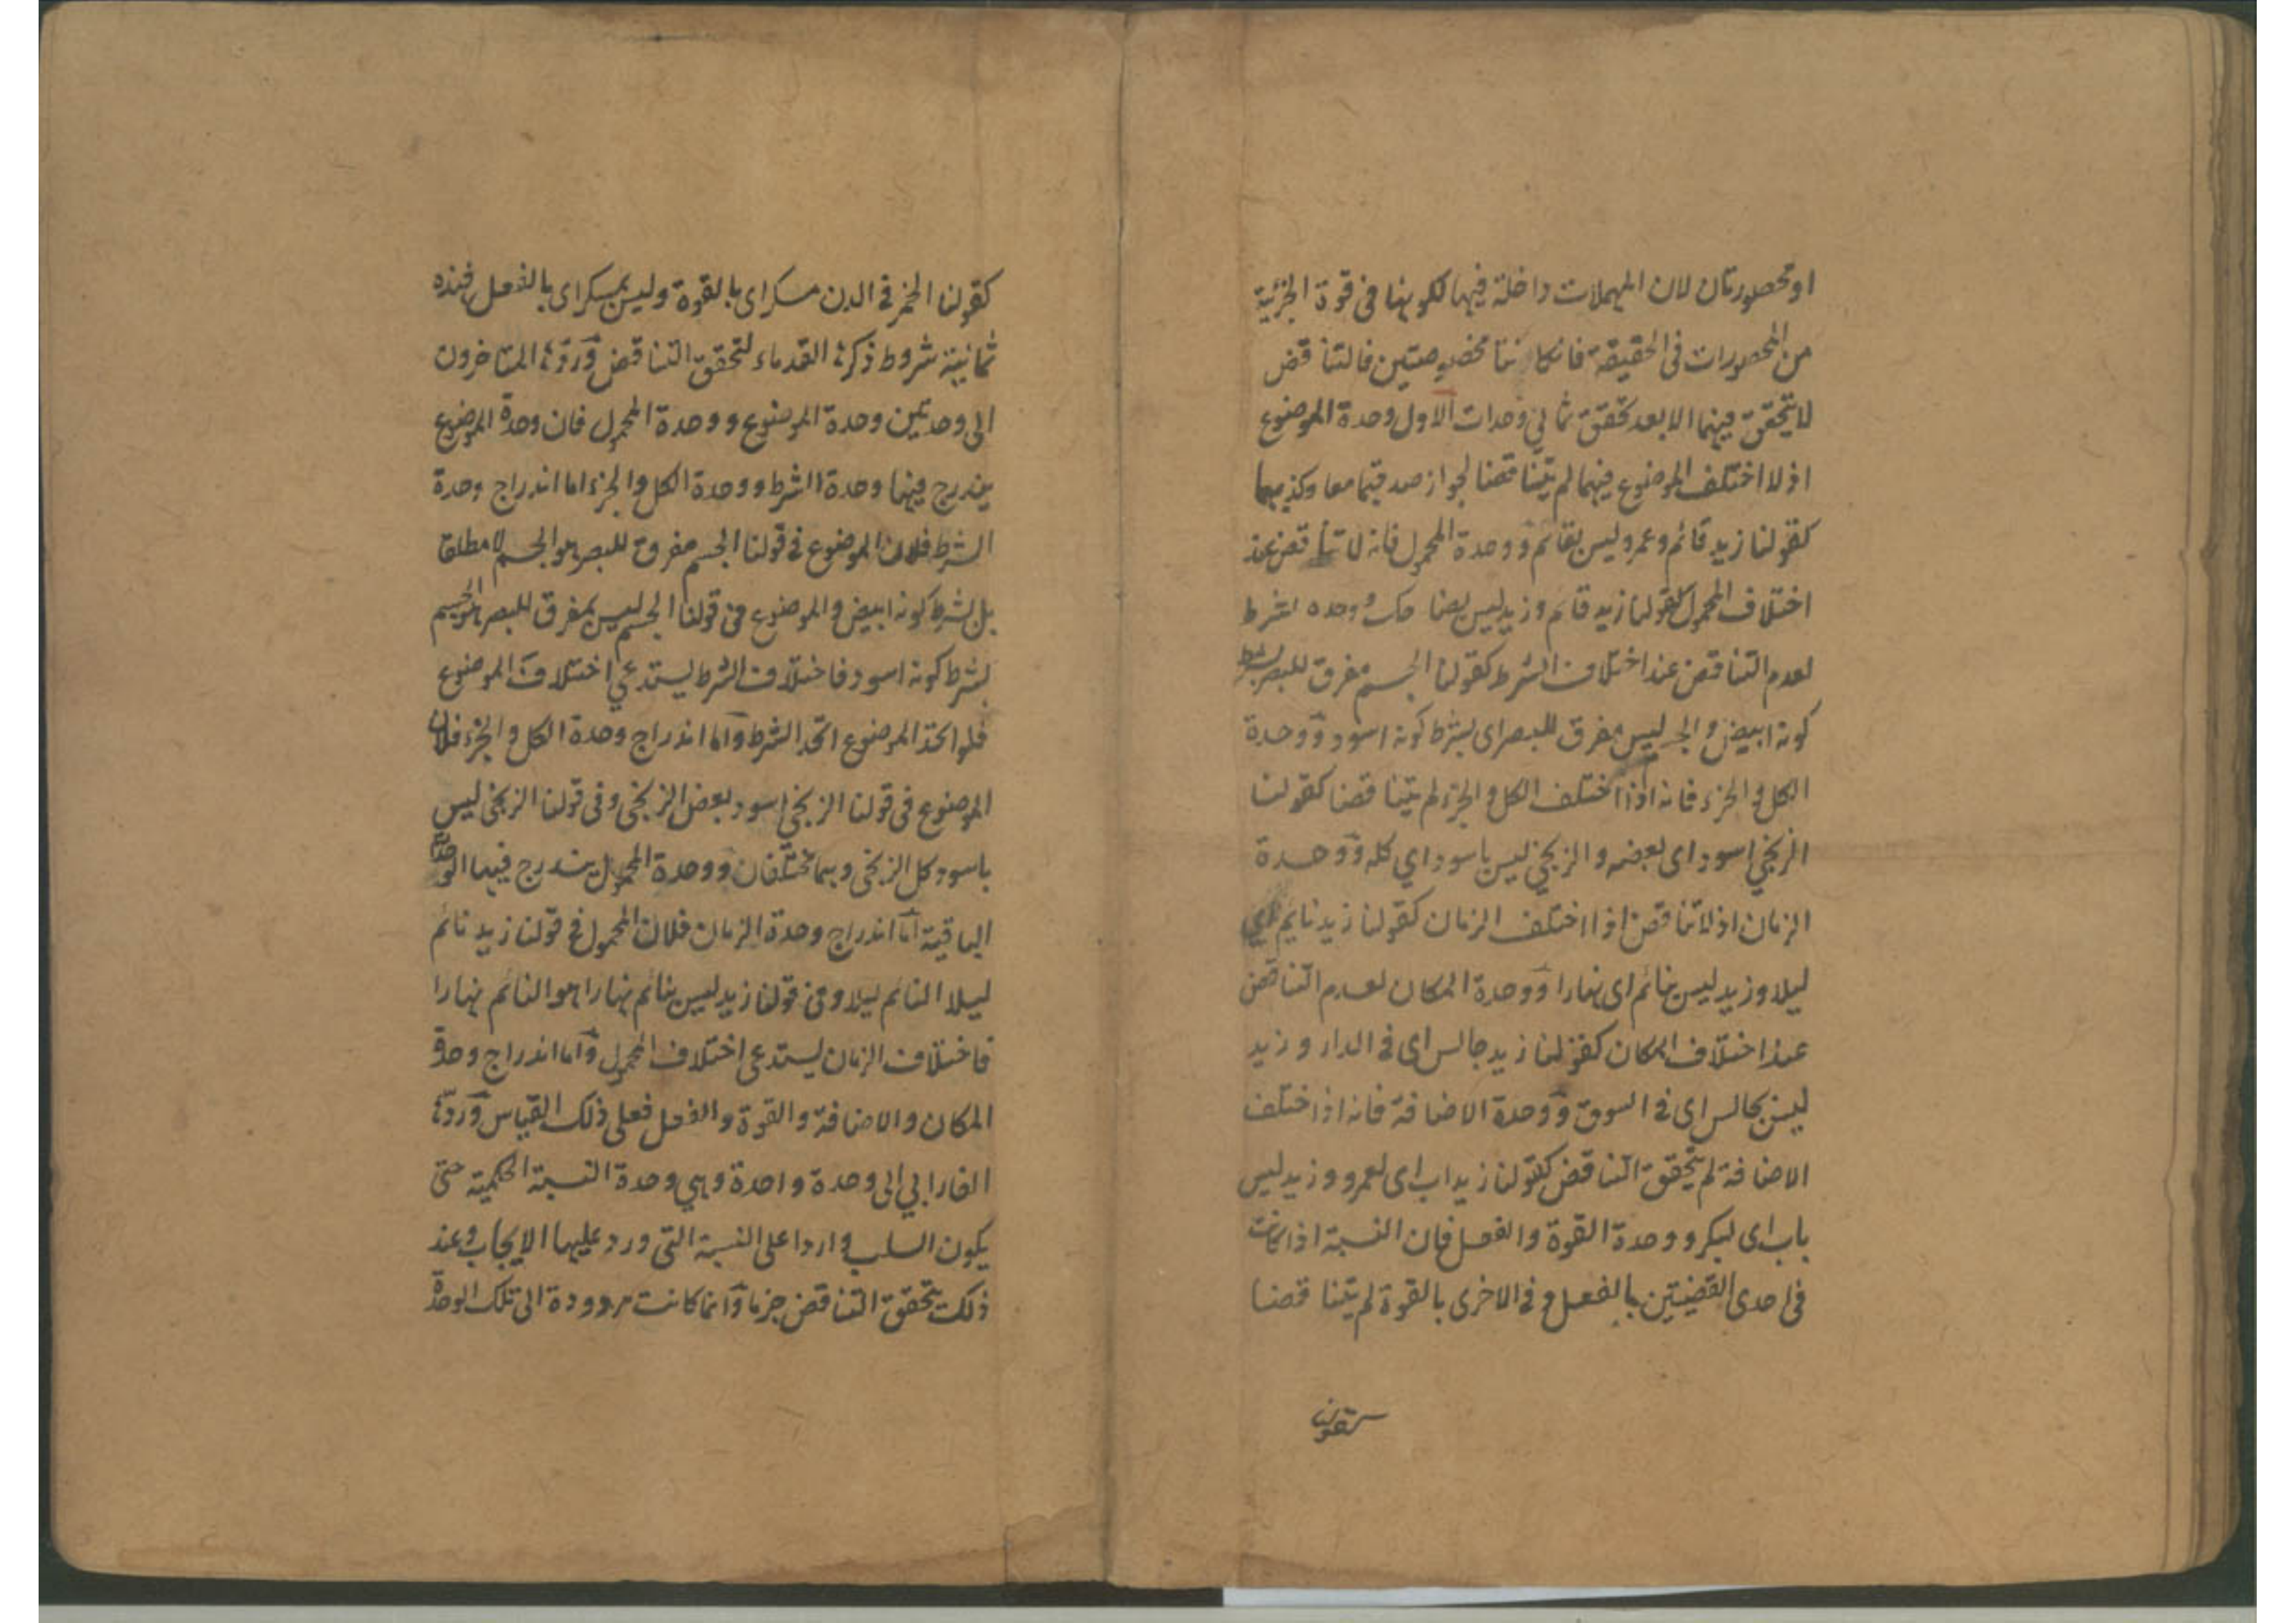 او محصورتان لان المهملات داخلة فيها لكونها فى قوة الجزئية
من المحصورات فى الحقيقة فان كانتا مخصوصتين فالتناقض
لا يتحقق فيهما الا بعد تحقق ثمانى وحدات الاول وحدة الموضوع
اذ لا اختلف الموضوع فيهما لم يتناقضا لجواز صدقهما معا وكذبهما
كقولنا زيد قائم وعمرو ليس بقائم ووحدة المحمول فانه لا تناقض عند
اختلاف المحمول كقولنا زيد قائم وزيد ليس بضاحك ووحدة الشرط
لعدم التناقض عند اختلاف الشرط كقولنا الجسم مفرق للبصر بشرط
كونه ابيض والجسم ليس مفرق للبصر اى بشرط كونه اسود ووحدة
الكل والجزء فانه اذا اختلف الكل والجزء لم يتناقضا كقولنا
الزنجي اسود اى بعضه والزنجي ليس باسود اي كله ووحدة
الزمان اذ لا تناقض اذا اختلف الزمان كقولنا زيد نايم اي
ليلا وزيد ليس بنائم اى نهارا ووحدة المكان لعدم التناقض
عند اختلاف المكان كقولنا زيد جالس اى فى الدار وزيد
ليس بجالس اى فى السوق ووحدة الاضافة فانه اذا اختلف
الاضافة لم يتحقق التناقض كقولنا زيد اب اى لعمرو وزيد ليس
باب اى لبكر ووحدة القوة والفعل فان النسبة اذا كانت
فى احدى القضيتين بالفعل وفى الاخرى بالقوة لم يتناقضا
كقولنا
كقولنا الخمر فى الدن مسكر اى بالقوة وليس بمسكر اى بالفعل فهذه
ثمانية شروط ذكرها القدماء لتحقق التناقض وردها المتاخرون
الى وحدتين وحدة الموضوع ووحدة المحمول فان وحدة الموضوع
يندرج فيها وحدة الشرط ووحدة الكل والجزء اما اندراج وحدة
الشرط فلان الموضوع فى قولنا الجسم مفرق للبصر هو الجسم لا مطلقا
بل بشرط كونه ابيض والموضوع فى قولنا الجسم ليس بمفرق للبصر هو الجسم
بشرط كونه اسود فاختلاف الشرط يستدعي اختلاف الموضوع
فلو اتحد الموضوع اتحد الشرط واما اندراج وحدة الكل والجزء فلان
الموضوع فى قولنا الزنجي اسود بعض الزنجى وفى قولنا الزنجى ليس
باسود كل الزنجى وهما مختلفان ووحدة المحمول يندرج فيها الوحدات
الباقية اما اندراج وحدة الزمان فلان المحمول فى قولنا زيد نائم
ليلا النائم ليلا وفى قولنا زيد ليس بنائم نهارا هو النائم نهارا
فاختلاف الزمان يستدعى اختلاف المحمول واما اندراج وحدة
المكان والاضافة والقوة والفعل فعلى ذلك القياس وردها
الفارابي الى وحدة واحدة وهي وحدة النسبة الحكمية حتى
يكون السلب واردا على النسبة التى ورد عليها الايجاب وعند
ذلك يتحقق التناقض جزما وانما كانت مردودة الى تلك الوحدة